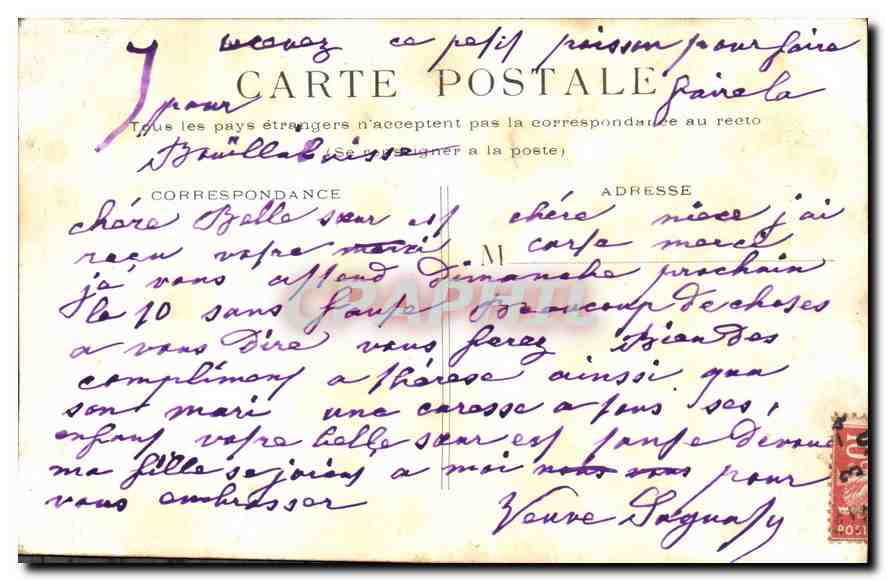 recevez ce petit poisson pour faire
CARTE POSTALE
pour faire la
Tous les pays étrangers n'acceptent pas la correspondance au recto
Bouillabaisse
(Se renseigner a la poste)
CORRESPONDANCE
ADRESSE
chére Belle sœur est chére niece j'ai
reçu votre merci carte merci
M
CPAPHIL
ja vous attend dimanche prochain
le 10 sans faute Beaucoup de choses
a vous dire vous ferez Bien des
compliment a thérese ainsi qua
son mari une caresse a tous ses
enfant votre belle sœur est tante dévoué
ma fille se joient a moi pour
vous embrasser
Veuve
10
POST